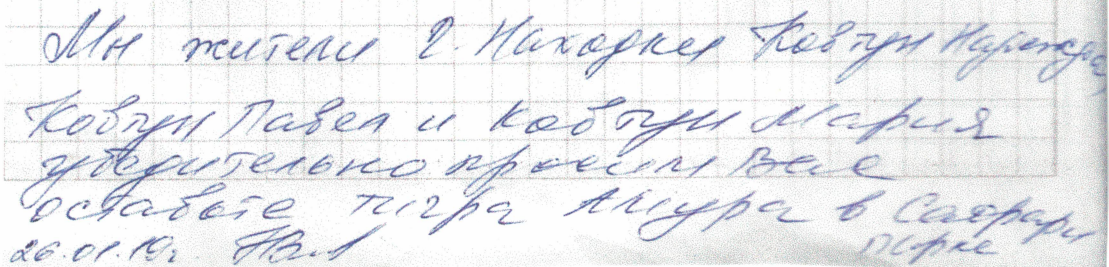 Мы жители г. Находки Ковтун Надежда,
Ковтун Павел и Ковтун Мария
убедительно просим Вас
оставьте тигра Амура в Сафари
парке
26.01.19г.